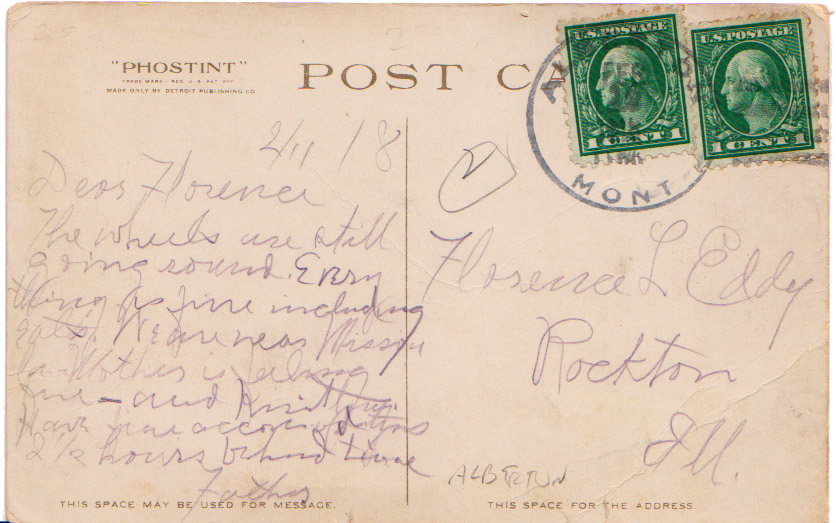 "PHOSTINT"
TRADE MARK - REG. U.S. PAT. OFF.
MADE ONLY BY DETROIT PUBLISHING CO.
POST CA
U.S. POSTAGE
1 CENT 1
U.S. POSTAGE
1 CENT 1
FEB
MONT
2/11/18
Dear Florence
The wheels are still
going round. Every
thing is fine including
Eats. We are near Missou
la Mother is feeling
fine - and
Have fine accomodations
2 1/2 hours behind time
Father
THIS SPACE MAY BE USED FOR MESSAGE.
Florence L Eddy
Rockton
Ill.
ALBERTON
THIS SPACE FOR THE ADDRESS